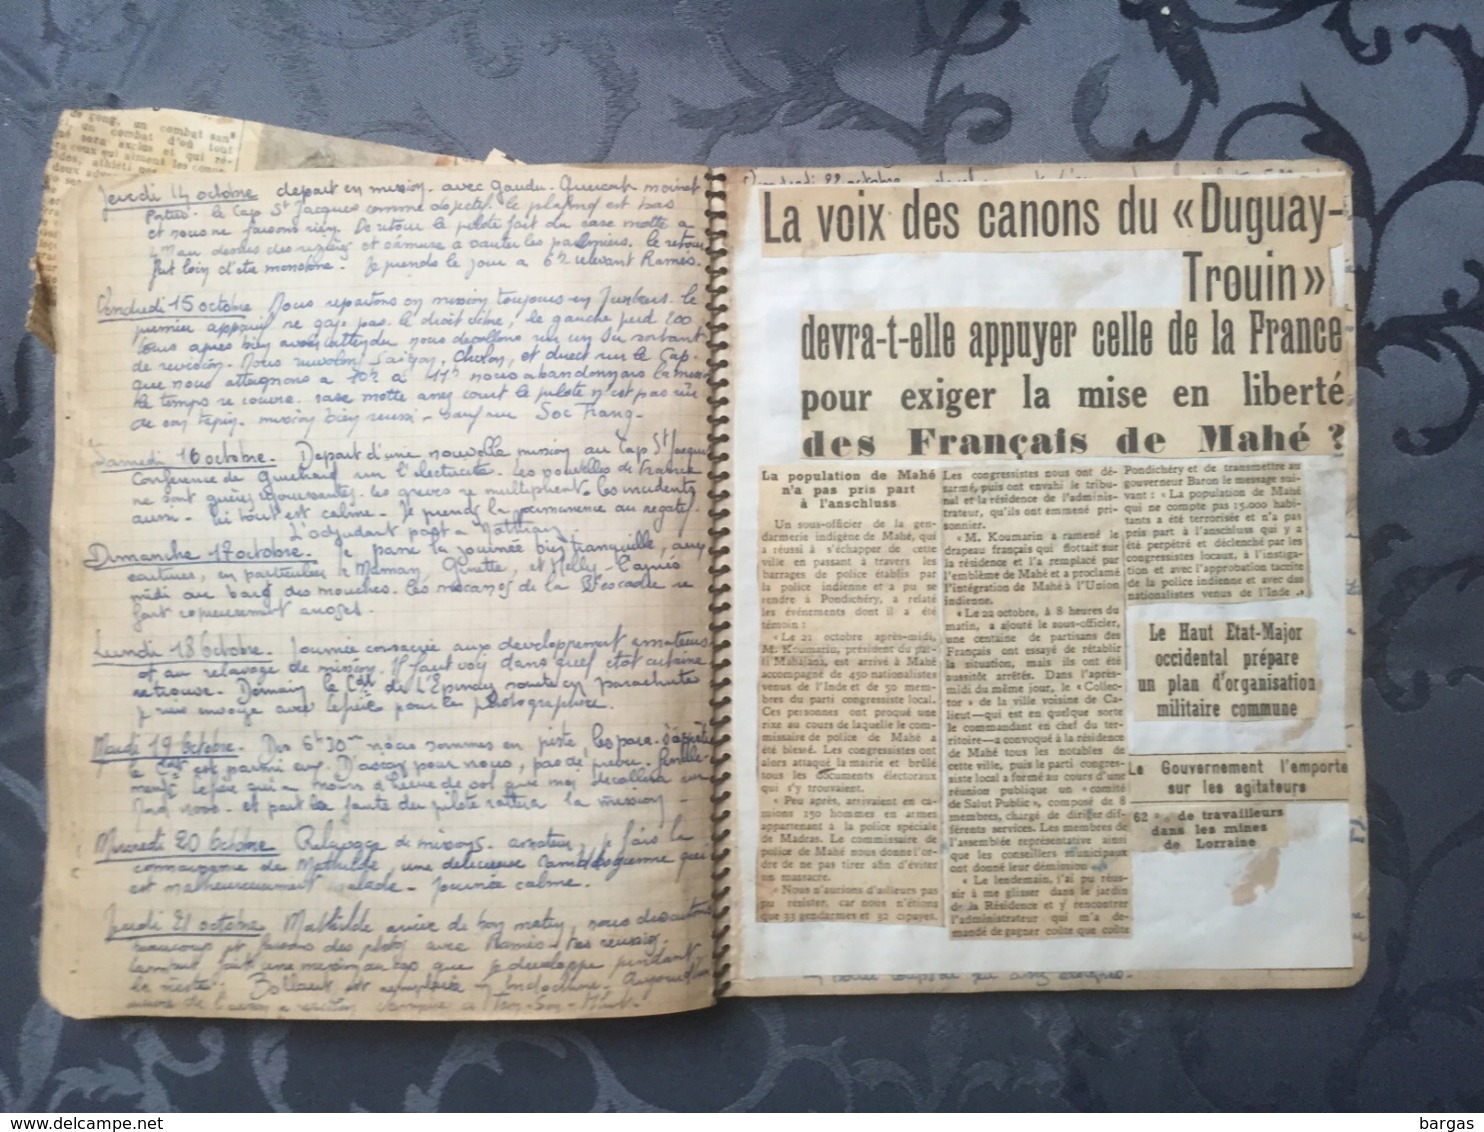 de gong, un combat sans
un combat d'où tout
sera exclus et qui ré-
ceux qui aiment les
athléti
deux
Jeudi 14 octobre depart en mission avec Gaudu. Guicart moinet
Portus. le Cap St Jacques comme objectif. le plafond est bas
et nous ne faisons rien. Au retour le pilote fait du rase motte a
1m au dessus des rizières et s'amuse a sauter les palmiers. le retour
fut loin d'etre monotone. Je prends le jour a 6h relevant Ramès.
Vendredi 15 octobre Nous repartons en mission toujours en Junkers. le
premier appareil ne gaze pas. le droit vibre, le gauche perd 200
tours apres bien avoir attendu nous décollons sur un Ju sortant
de revision. Nous survolons Saigon, Cholon, et direct sur le Cap.
que nous attaignons a 10h à 11h nous abandonnons la mission
le temps se couvre. rase motte assez court le pilote n'est pas sûr
de son tapin. mission bien reussi - sauf sur Soc Trang -
Samedi 16 octobre. Depart d'une nouvelle mission au Cap St Jacques
Conference de Guichard sur l'electricité. les nouvelles de France
ne sont guères rejouissantes. les greves se multiplient. les incidents
aussi. Ici tout est calme. Je prends la permanence au negatif.
L'adjudant part a
Dimanche 17 octobre. Je passe la journée bien tranquille, aux
ecritures, en particulier a Maman, Ginette, et Nelly. L'après
midi au bard des mouches. Les mecanos de la B escadre se
font copieusement arroser.
Lundi 18 Octobre. Journée consacrée aux developpement amateurs
et au relavage de mission. Il faut voir dans quel etat certaine
retrouse. Demain le Cdt de L'Epinay saute en parachute
je suis envoyé avec lepère pour le photographier.
Mardi 19 Octobre. Des 6h30 nous sommes en piste, les para s'apprêtent
le Cdt est parmi eux. D'avion pour nous, pas de prevu. Finale-
ment lepère qui a moins d'heure de vol que moi decollera sur
Nord 1000. et par la faute du pilote rattera la mission -
Mercredi 20 Octobre Relavage de missions. amateur, je fais la
connaissance de Mathilde, une delicieuse cambodgienne qui
est malheureusement malade - Journée calme.
Jeudi 21 octobre Mathilde arrive de bon matin, nous discutons
beaucoup et faisons des photos avec Ramès. Tres reussi.
fait une mission au cap que je developpe pendant
la sieste. Bollaert est remplacé en Indochine.
a Tan-Son-Nhut.
Vendredi 22 octobre
La voix des canons du « Duguay-
Trouin »
devra-t-elle appuyer celle de la France
pour exiger la mise en liberté
des Français de Mahé ?
La population de Mahé
n'a pas pris part
à l'anschluss
Un sous-officier de la gen-
darmerie indigène de Mahé, qui
a réussi à s'échapper de cette
ville en passant à travers les
barrages de police établis par
la police indienne et a pu se
rendre à Pondichéry, a relaté
les événements dont il a été
témoin :
« Le 21 octobre après-midi,
M. Koumarin, président du par-
ti Mahajana, est arrivé à Mahé
accompagné de 450 nationalistes
venus de l'Inde et de 50 mem-
bres du parti congressiste local.
Ces personnes ont proqué une
rixe au cours de laquelle le com-
missaire de police de Mahé a
été blessé. Les congressistes ont
alors attaqué la mairie et brûlé
tous les documents électoraux
qui s'y trouvaient.
« Peu après, arrivaient en ca-
mions 150 hommes en armes
appartenant à la police spéciale
de Madras. Le commissaire de
police de Mahé nous donne l'or-
dre de ne pas tirer afin d'éviter
un massacre.
« Nous n'aurions d'ailleurs pas
pu résister, car nous n'étions
que 33 gendarmes et 32 cipayes.
Les congressistes nous ont dé-
sarmé, puis ont envahi le tribu-
nal et la résidence de l'adminis-
trateur, qu'ils ont emmené pri-
sonnier.
« M. Koumarin a ramené le
drapeau français qui flottait sur
la résidence et l'a remplacé par
l'emblème de Mahé et a proclamé
l'intégration de Mahé à l'Union
indienne.
« Le 22 octobre, à 8 heures du
matin, a ajouté le sous-officier,
une centaine de partisans des
Français ont essayé de rétablir
la situation, mais ils ont été
aussitôt arrêtés. Dans l'après-
midi du même jour, le « Collec-
tor » de la ville voisine de Ca-
licut — qui est en quelque sorte
le commandant en chef du ter-
ritoire — a convoqué à la résidence
de Mahé tous les notables de
cette ville, puis le parti congres-
siste local a formé au cours d'une
réunion publique un « comité
de Salut Public », composé de 8
membres, chargé de diriger dif-
férents services. Les membres de
l'assemblée représentative ainsi
que les conseillers municipaux
ont donné leur démission.
« Le lendemain, j'ai pu réus-
sir à me glisser dans le jardin
de la Résidence et y rencontrer
l'administrateur qui m'a de-
mandé de gagner coûte que coûte
Pondichéry et de transmettre au
gouverneur Baron le message sui-
vant : « La population de Mahé
qui ne compte pas 15.000 habi-
tants a été terrorisée et n'a pas
pris part à l'anschluss qui y a
été perpétré et déclenché par les
congressistes locaux, à l'instiga-
tion et avec l'approbation tacite
de la police indienne et avec des
nationalistes venus de l'Inde ».
Le Haut Etat-Major
occidental prépare
un plan d'organisation
militaire commune
Le Gouvernement l'emporte
sur les agitateurs
62 % de travailleurs
dans les mines
de Lorraine
bargas
delcampe.net